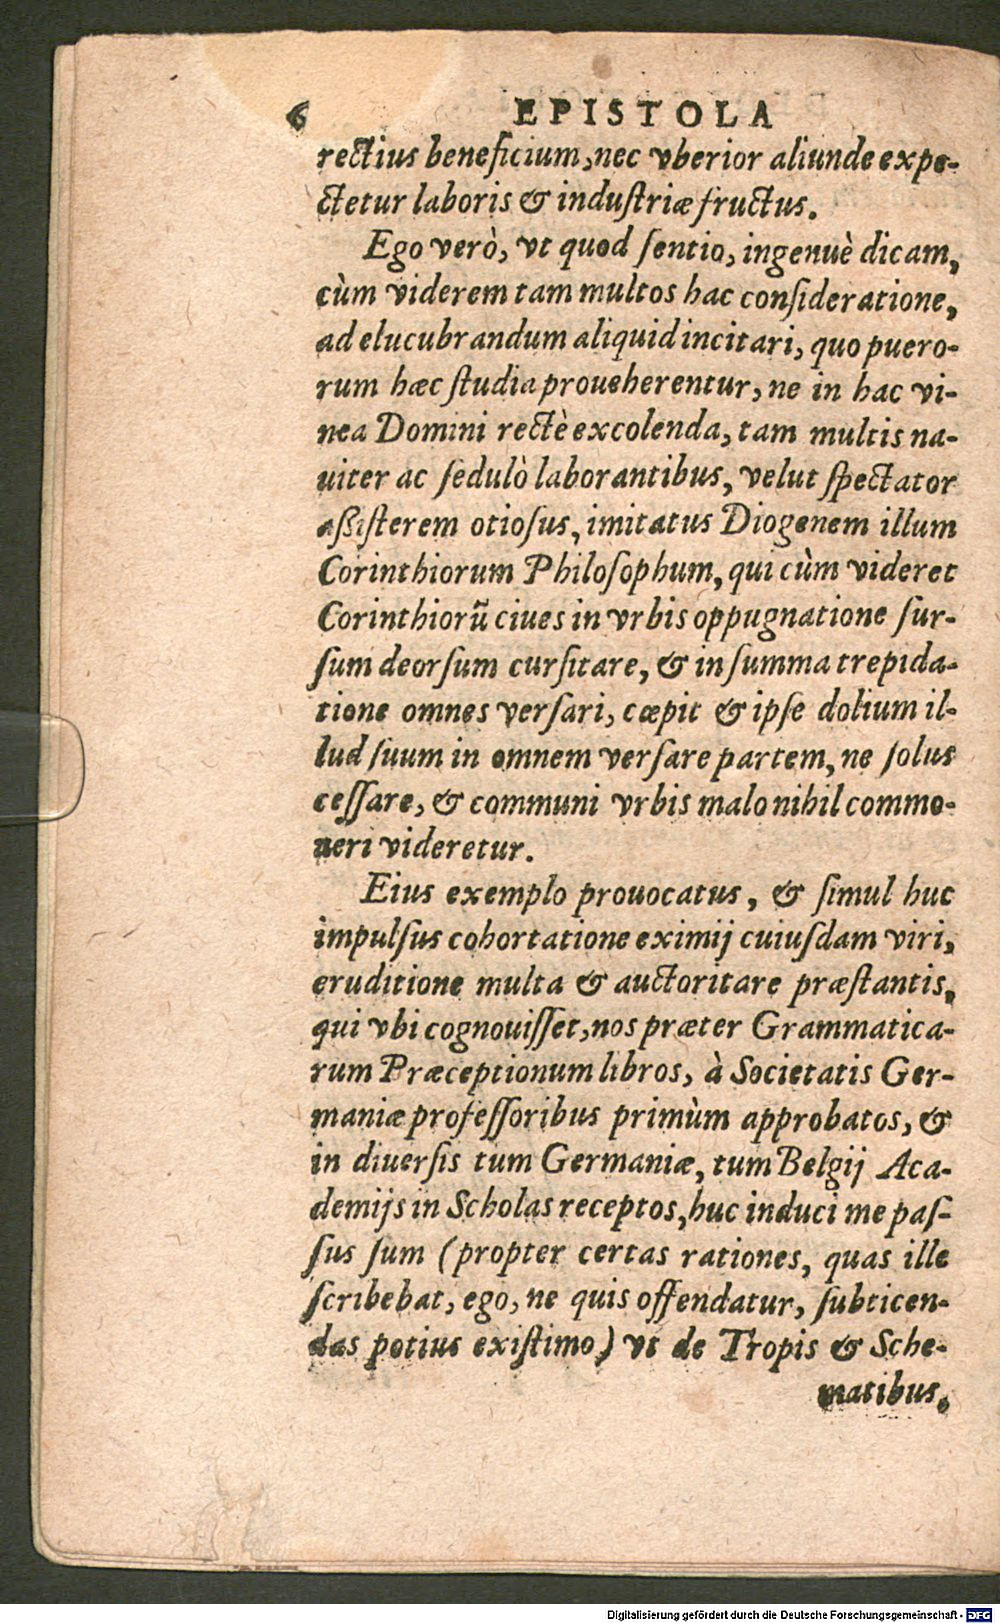 6 EPISTOLA
rectius beneficium, nec vberior aliunde expe-
ctetur laboris & industriæ fructus.
Ego verò, vt quod sentio, ingenuè dicam,
cùm viderem tam multos hac consideratione,
ad elucubrandum aliquid incitari, quo puero-
rum hæc studia proueherentur, ne in hac vi-
nea Domini rectè excolenda, tam multis na-
uiter ac sedulò laborantibus, velut spectator
aßisterem otiosus, imitatus Diogenem illum
Corinthiorum Philosophum, qui cùm videret
Corinthiorũ ciues in vrbis oppugnatione sur-
sum deorsum cursitare, & in summa trepida-
tione omnes versari, cœpit & ipse dolium il-
lud suum in omnem versare partem, ne solus
cessare, & communi vrbis malo nihil commo-
ueri videretur.
Eius exemplo prouocatus, & simul huc
impulsus cohortatione eximij cuiusdam viri,
eruditione multa & auctoritare præstantis,
qui vbi cognouisset, nos præter Grammatica-
rum Præceptionum libros, à Societatis Ger-
maniæ professoribus primùm approbatos, &
in diuersis tum Germaniæ, tum Belgij Aca-
demijs in Scholas receptos, huc induci me pas-
sus sum (propter certas rationes, quas ille
scribebat, ego, ne quis offendatur, subticen-
das potius existimo) vt de Tropis & Sche-
matibus,
Digitalisierung gefördert durch die Deutsche Forschungsgemeinschaft - DFG